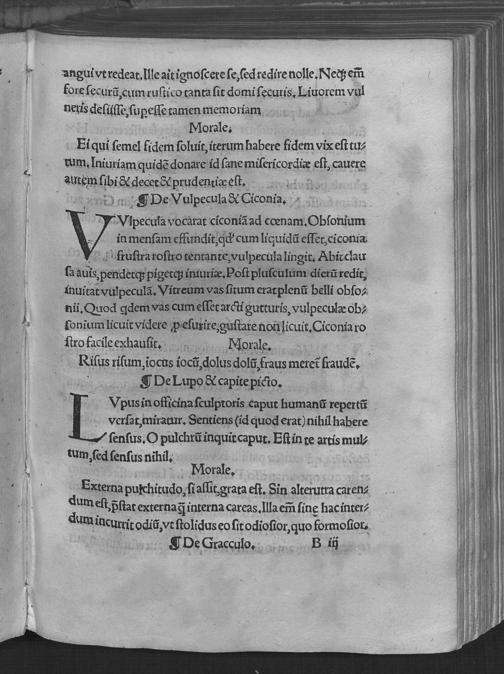 angui vt redeat. Ille ait ignoscere se, sed redire nolle. Neqꝫ em̃
fore securũ, cum rustico tanta sit domi securis. Liuorem vul
neris desiisse, supesse tamen memoriam
Morale.
Ei qui semel fidem soluit, iterum habere fidem vix est tu-
tum. Iniuriam quidẽ donare id sane misericordiæ est, cauere
autem sibi & decet & prudentiæ est.
¶ De Vulpecula & Ciconia.
VVlpecula vocarat ciconiã ad cœnam. Obsonium
in mensam effundit, qd' cum liquidũ esset, ciconia
frustra rostro tentante, vulpecula lingit. Abit elau
sa auis, pendetqꝫ pigetqꝫ iniuriæ. Post plusculum dierũ redit,
inuitat vulpeculã. Vitreum vas situm erat plenũ belli obso-
nii. Quod qdem vas cum esset arcti gutturis, vulpeculæ ob-
sonium licuit videre, & esurire, gustare non licuit. Ciconia ro
stro facile exhausit. Morale.
Risus risum, iocus iocũ, dolus dolũ, fraus meret᷑ fraudẽ.
¶ De Lupo & capite picto.
LVpus in officina sculptoris caput humanũ repertũ
versat, miratur. Sentiens (id quod erat) nihil habere
sensus. O pulchrũ inquit caput. Est in te artis mul-
tum, sed sensus nihil.
Morale.
Externa pulchitudo, si assit, grata est. Sin alterutra caren-
dum est, p̃stat externa q̃ interna careas. Illa em̃ sine hac inter-
dum incurrit odiũ, vt stolidus eo sit odiosior, quo formosior.
¶ De Gracculo. B iij